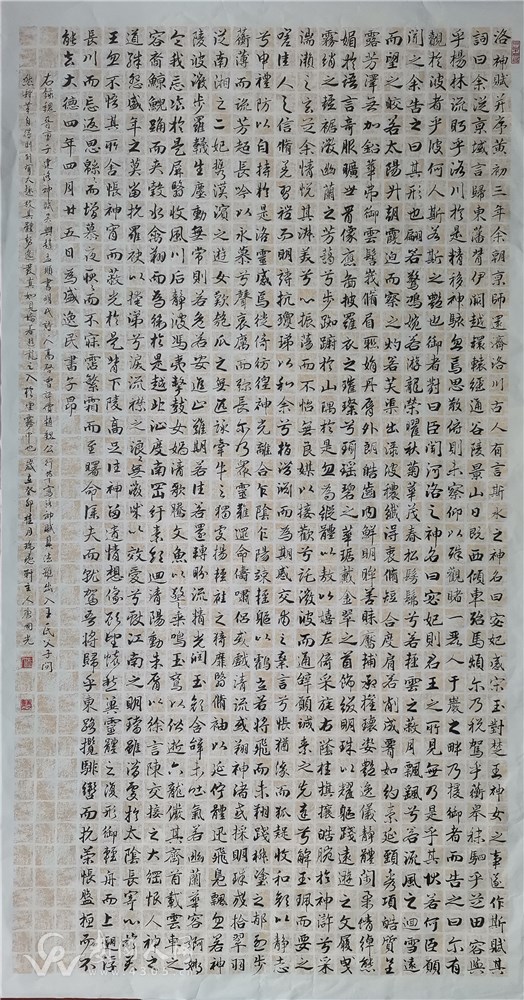 洛神賦并序黃初三年余朝京師還濟洛川古人有言斯水之神名曰宓妃感宋玉對楚王神女之事遂作斯賦其
詞曰余從京域言歸東藩背伊闕越轘轅經通谷陵景山日既西傾車殆馬煩尔乃税駕乎蘅皋秣駟乎芝田容與
乎楊林流眄乎洛川於是精移神駭忽焉思散俯則未察仰以殊觀睹一麗人于巖之畔乃援御者而告之曰尔有
覿於彼者乎彼何人斯若斯之豔也御者對曰臣聞河洛之神名曰宓妃則君王之所見無乃是乎其狀若何臣願
聞之余告之曰其形也翩若驚鴻婉若游龍榮曜秋菊華茂春松髣髴兮若輕雲之蔽月飄颻兮若流風之迴雪遠
而望之皎若太陽升朝霞迫而察之灼若芙蕖出渌波穠纖得衷脩短合度肩若削成腰如約素延頸秀項皓質呈
露芳澤無加鉛華弗御雲髻峩峩脩眉聯娟丹脣外朗皓齒内鮮明眸善睞靨輔承權瓌姿豔逸儀靜體閑柔情綽態
媚於語言奇服曠世骨像應圖披羅衣之璀璨兮珥瑶碧之華琚戴金翠之首飾綴明珠以耀軀踐遠遊之文履曳
霧綃之輕裾微幽蘭之芳藹兮步踟躕於山隅於是忽焉縱體以遨以嬉左倚采旄右蔭桂旗攘皓腕於神滸兮采
湍瀨之玄芝余情悅其淑美兮心振蕩而不怡無良媒以接歡兮託微波而通辭願誠素之先達兮解玉珮而要之
嗟佳人之信脩羌習禮而明詩抗瓊珶以和余兮指潛淵而為期感交甫之棄言兮悵猶豫而狐疑收和顏以靜志
兮申禮防以自持於是洛靈感焉徙倚彷徨神光離合乍陰乍陽竦輕軀以鶴立若將飛而未翔踐椒塗之郁烈步
蘅薄而流芳超長吟以永慕兮聲哀厲而彌長尔乃衆靈雜遝命儔嘯侣或戲清流或翔神渚或采明珠或拾翠羽
從南湘之二妃攜漢濱之遊女歎匏瓜之無匹詠牽牛之獨處揚輕袿之猗靡翳脩袖以延佇體迅飛鳧飄忽若神
陵波微步羅襪生塵動無常則若危若安進止難期若往若還轉眄流精光潤玉顏含辭未吐氣若幽蘭華容婀娜
令我忘飡於是屏翳收風川后靜波馮夷擊鼓女媧清歌騰文魚以警乘鳴玉鸞以偕逝六龍儼其齊首載雲車之
容裔鯨鯢踊而夾轂水禽翔而為衛於是越北沚度南岡紆素領迴清陽動朱脣以徐言陳交接之大綱恨人神之
道殊怨盛年之莫當抗羅袂以掩涕兮淚流襟之浪浪無微情以效愛兮獻江南之明璫雖潛處於太陰長寄心於君
王忽不悟其所舍悵神宵而蔽光於是背下陵高足往神留遺情想像顧望懷愁冀靈體之復形御輕舟而上遡浮
長川而忘返思緜緜而增慕夜耿耿而不寐霑繁霜而至曙命僕夫而就駕吾將歸乎東路攬騑轡而抗策悵盤桓而不
能去大德四年四月廿五日為盛逸民書子昂
右錄魏曹子建洛神賦明代詩人高啓曾評趙魏公行書寫洛神賦其法雖出入王氏父子間
然肆筆自得則別有天趣故其體勢逸發真如見矯若游龍之入於雲霧中也歲在癸卯桂月主人唐國光